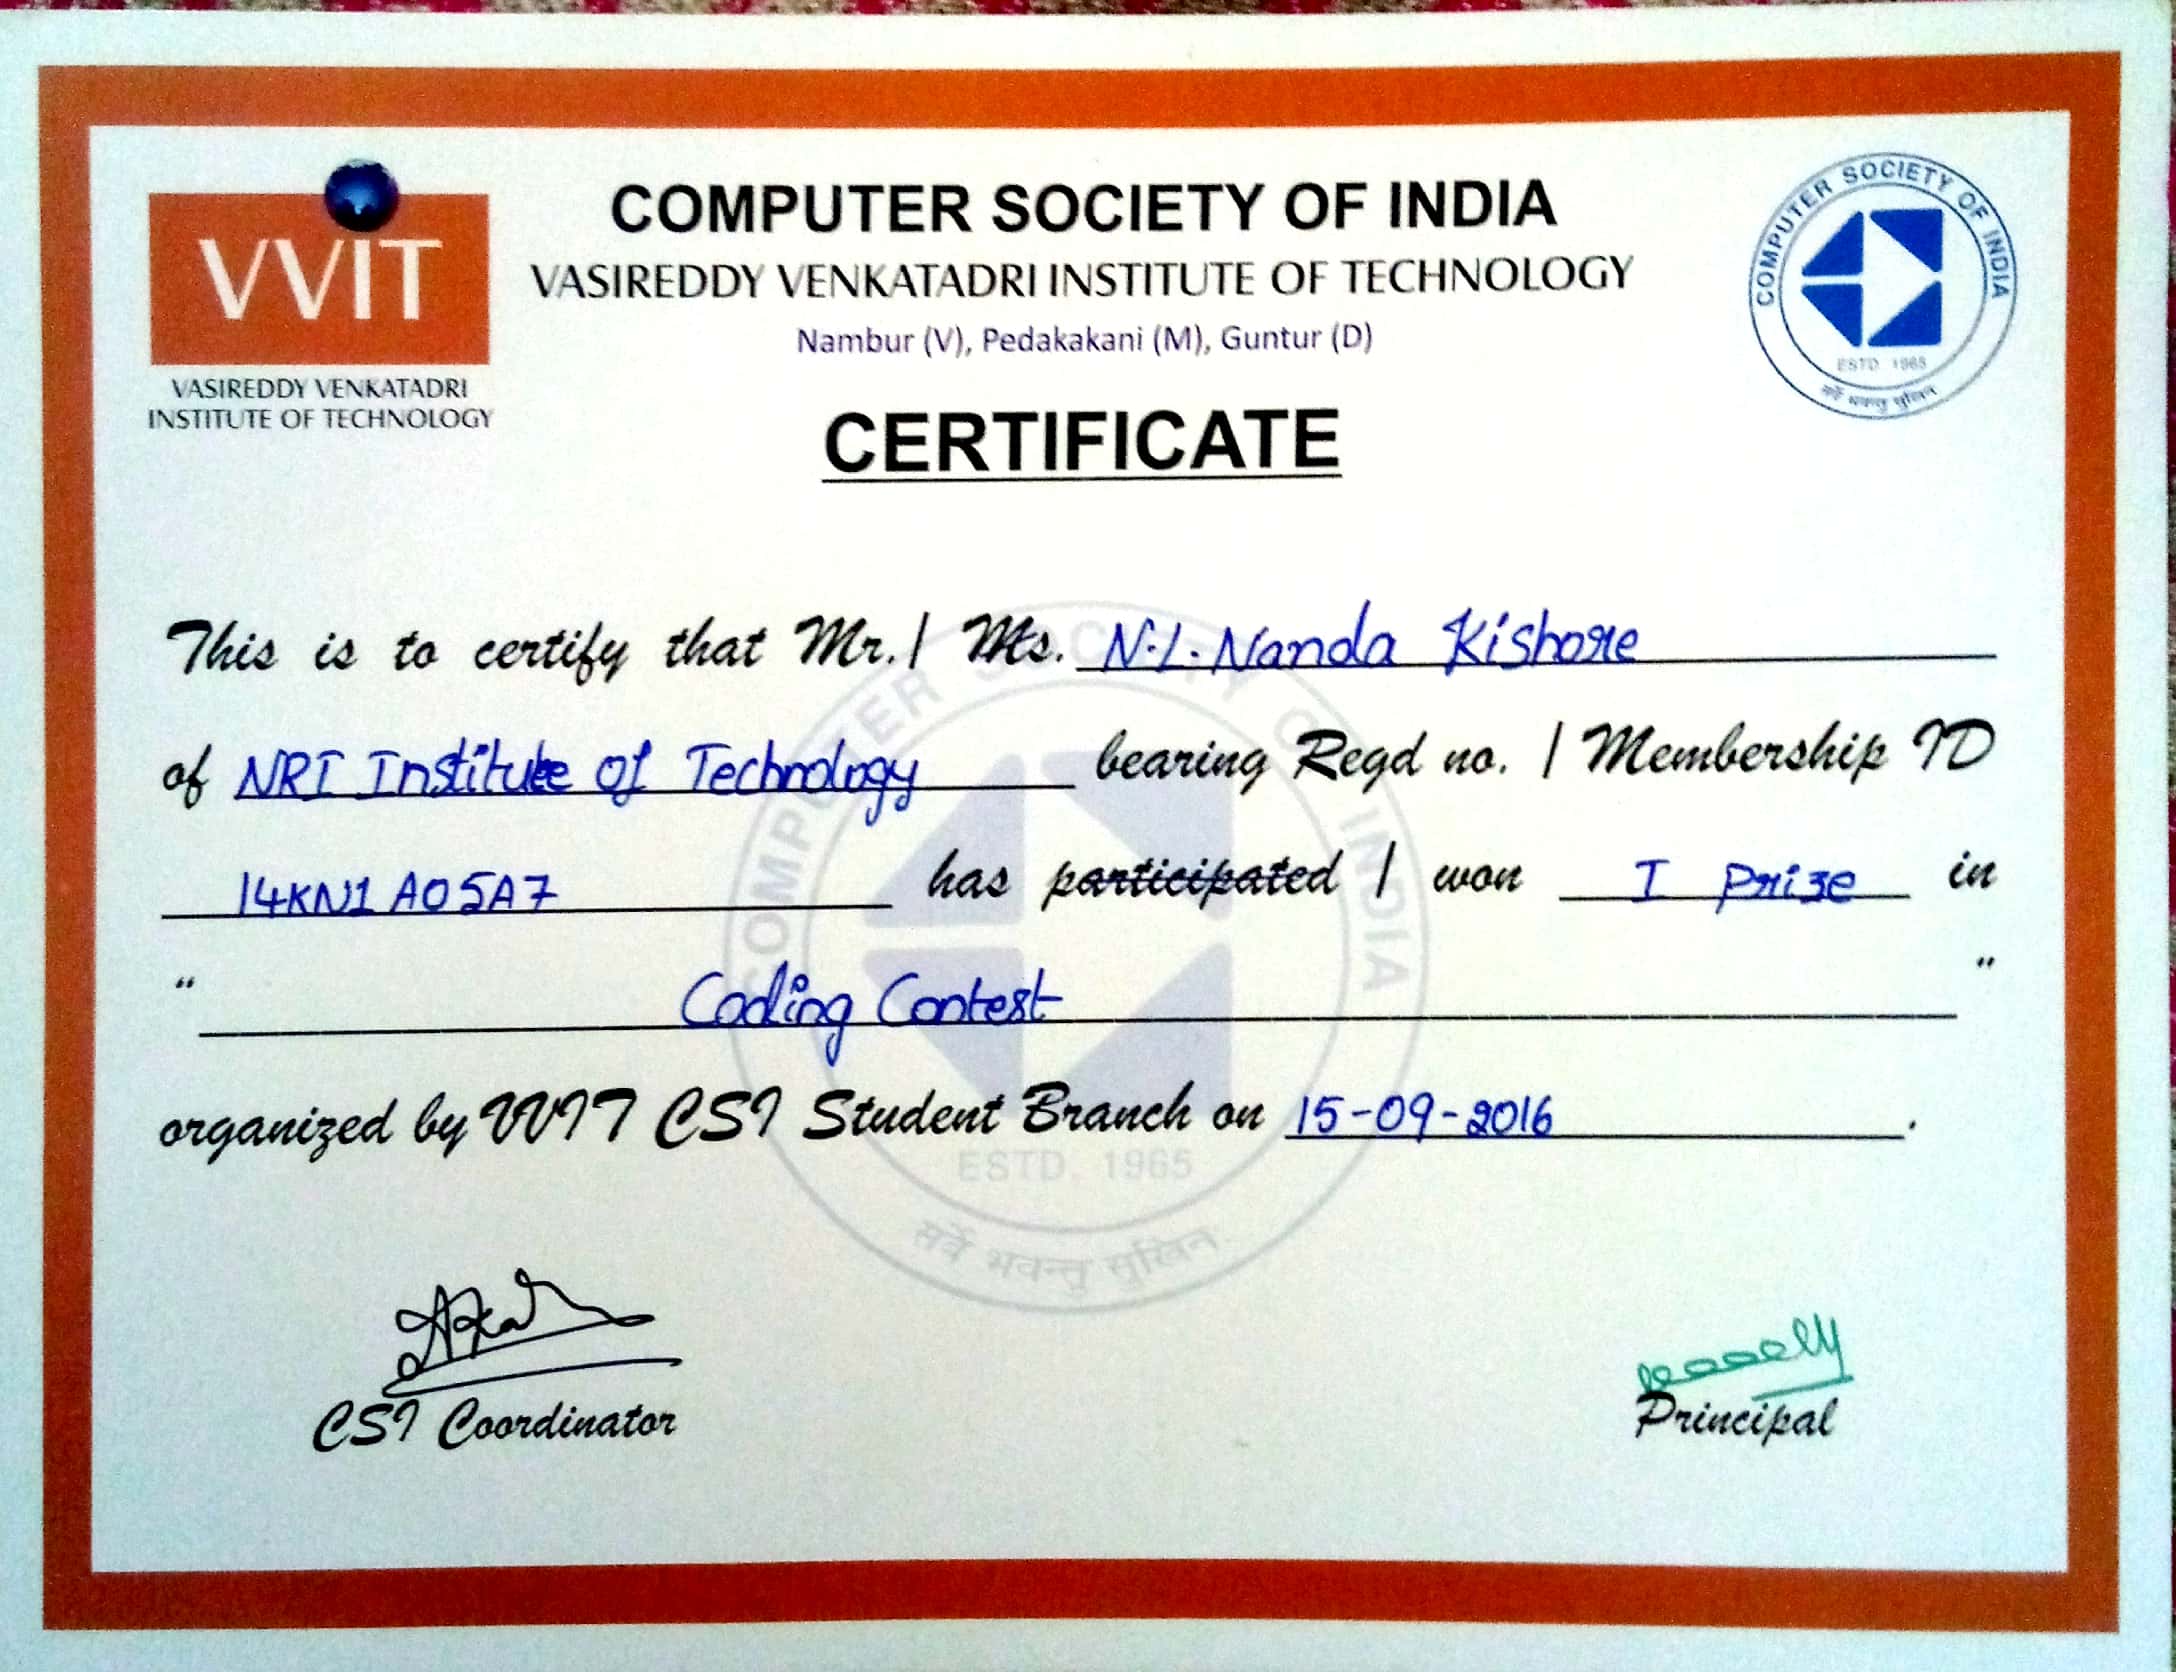 VVIT
VASIREDDY VENKATADRI
INSTITUTE OF TECHNOLOGY
COMPUTER SOCIETY OF INDIA
VASIREDDY VENKATADRI INSTITUTE OF TECHNOLOGY
Nambur (V), Pedakakani (M), Guntur (D)
COMPUTER SOCIETY OF INDIA
ESTD. 1965
सर्वे भवन्तु सुखिन
CERTIFICATE
This is to certify that Mr. / Ms. N.L. Nanda Kishore
of NRI Institute of Technology bearing Regd no. / Membership ID
14KN1A05A7 has participated / won I Prize in
" Coding Contest "
organized by VVIT CSI Student Branch on 15-09-2016 .
COMPUTER SOCIETY OF INDIA
ESTD. 1965
सर्वे भवन्तु सुखिन
CSI Coordinator
Principal